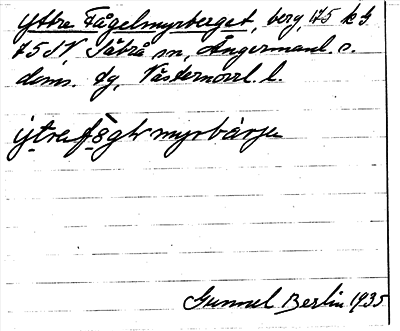 Yttre Fågelmyrberget, berg, 175 k bl.
75 SV, Säbrå sn, Ångermanl. s.
doms. dg, Västernorrl. l.
ỳtre fȍgḷmyrbärje
Gunnel Berlin 1935